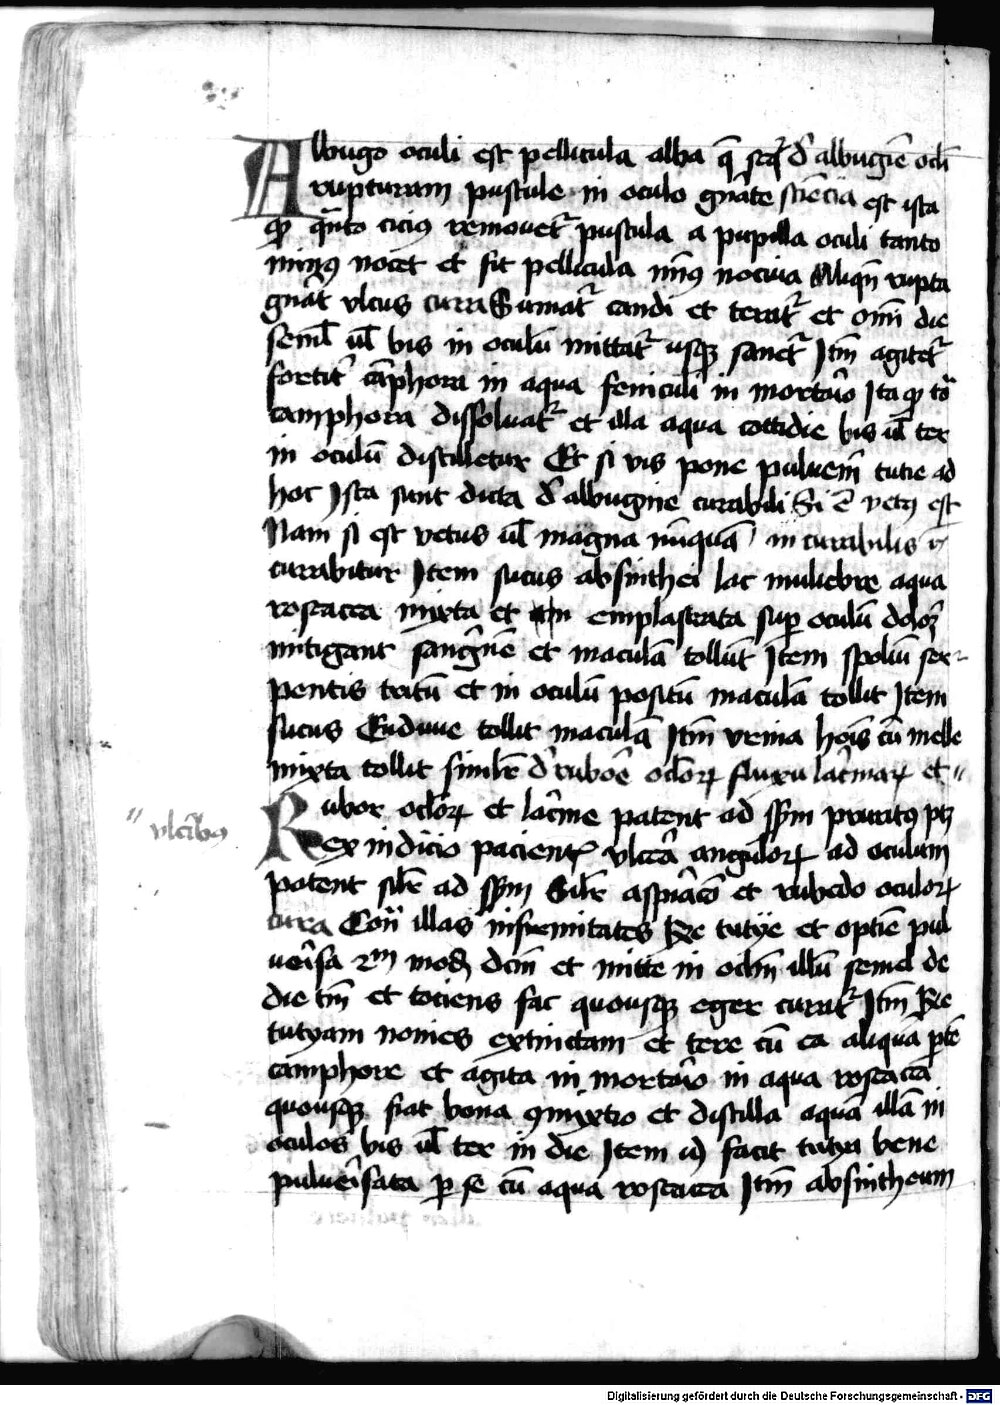 Albugo oculi est pellicula alba q̄ seq̄t̉ d̉ albugīe oclī
rupturam pustule in oculo gn̄ate sciēcia est ista
qͩ q̄nto cicius remouet̉ pustula a pupilla oculi tanto
minus nocet et fit pellicula min̄ nociua Aliqn̄ rupta
gn̄at̉ vlcus curra Sumat̉ candi et terat̉ et om̄i die
seml̄ ul̄ bis in oculū mittat̉ usqꝫ sanet̉ Itm̄ agitet̉
fortit̉ cāphora in aqua feniculi in mortario Ita qͩ tō
camphora dissoluat̉ et illa aqua cottidie bis ul̄ ter
in oculū distilletur Et si vis pone puluem̄ tutie ad
hoc Ista sunt dicta d̉ albugine curabili Si ē vetus est
Nam si est vetus ul̄ magna nūquā incurrabilis
currabitur Item sucus absinthei lac muliebre aqua
rosacea mixta et emplastrata sup̱ oculū dolorē
mitigant sangnē et maculā tollūt Item spoliū ser-
pentis tritū et in oculū positū maculā tollit Item
sucus Endiuie tollit maculā Itm̄ vrina hois cū melle
mixta tollit simlr̄ d̉ rubore oclorꝝ fluxu lacmarꝝ et //
Rubor oclorꝝ et lacme patent ad ssm pruritus ptꝫ
ex indicio pacientꝭ vlcera angulorꝝ ad oculum
patent silr̄ ad ssm Silr̄ et rubedo oculorꝝ
cura Con̄ illas infirmitates Re tutye et optīe pul
ueīsa 2m mod dcm̄ et mitte in oclm̄ illū semel de
die tm̄ et tociens fac quousqꝫ eger curat̉ Itm̄ Re
tutyam nonies extinctam et tere cū ea aliqua p̱tē
camphore et agita in mortario in aqua rosacea
quousqꝫ fiat bona ꝯmixtio et distilla aquā illā in
oculos bis ul̄ ter in die Item id facit tutya bene
pulueīsata p̱ se cū aqua rosacea Itm̄ absintheum
// vlcibus